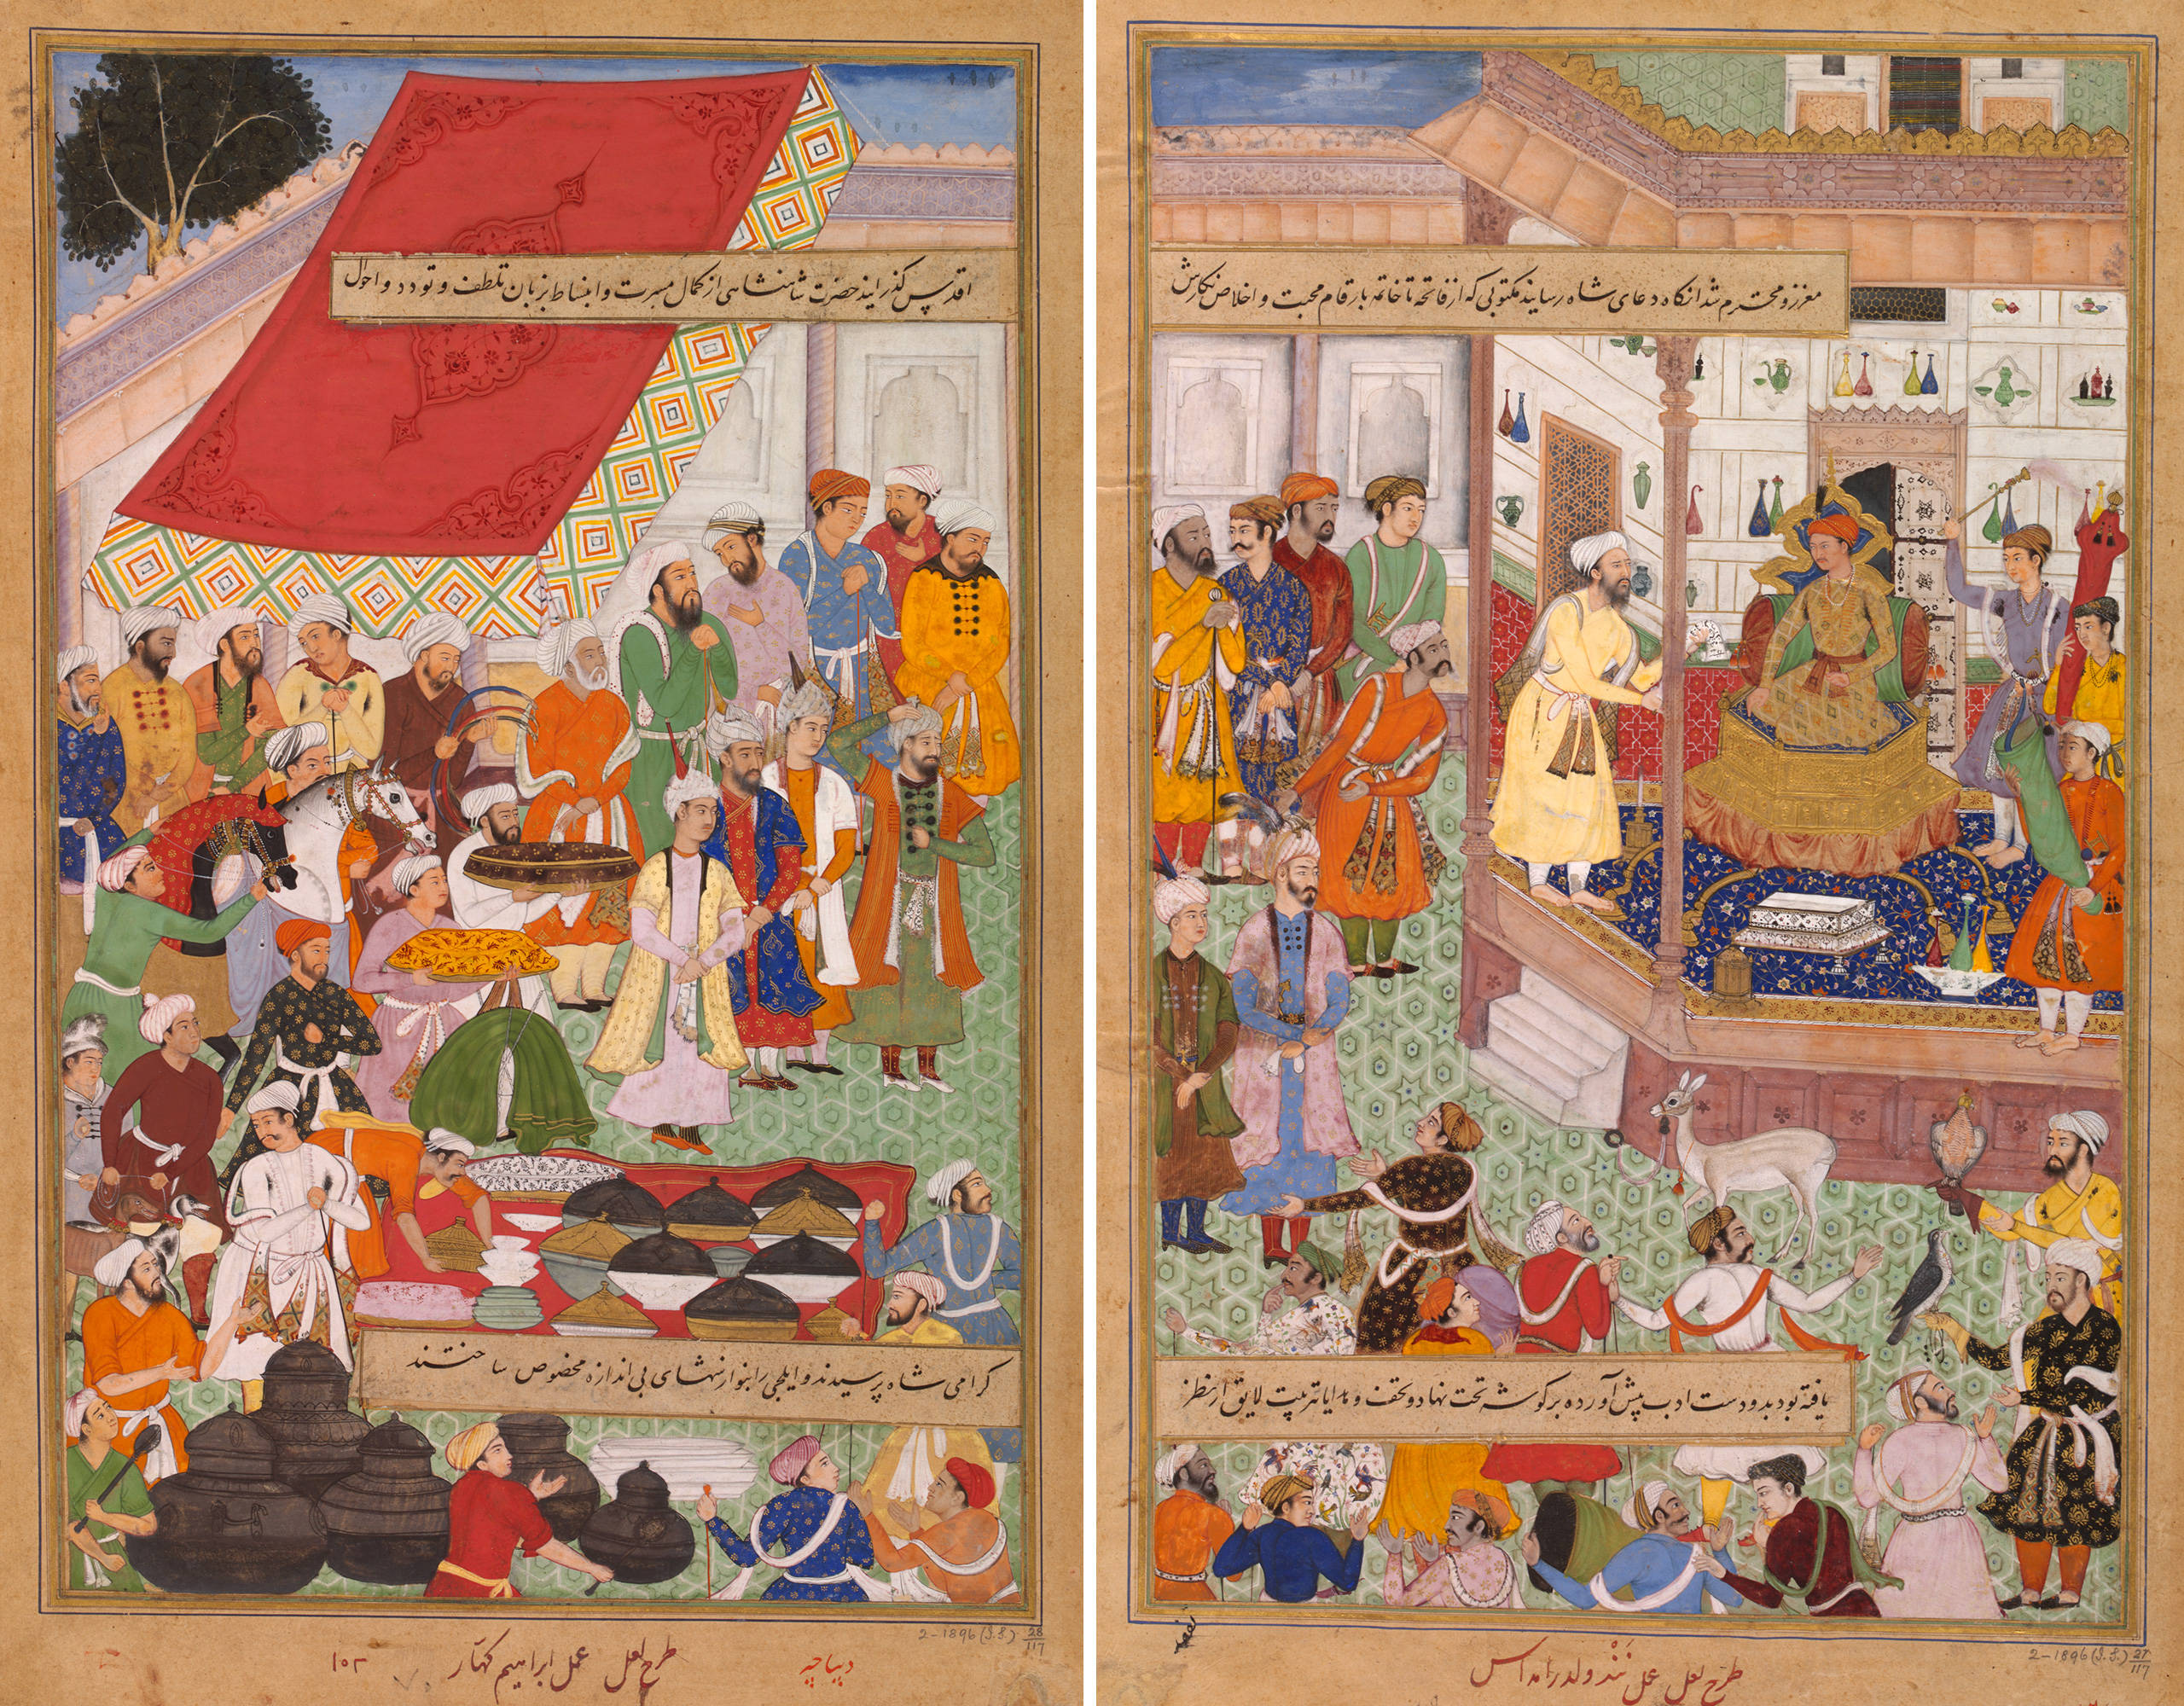 معزز و محترم شد انگاه دعای شاه رسانید مکتوبی که از فاتحه تا خاتمه بارقام محبت و اخلاص نگارش
یافته بود بدو دست ادب پیش آورده بر گوشه تخت نهاد و تحف و هدایا ترتیب لایق از نظر
2-1896 (I.S.) 27/117
طرح لعل عمل نند ولد رامداس
اقدس گذرانید حضرت شاهنشاهی از کمال مسرت و انبساط بزبان تلطف و تودد و احوال
گرامی شاه پرسیدند و ایلچی را بنوازشهای بی اندازه مخصوص ساختند
2-1896 (I.S.) 28/117
دیباچه طرح لعل عمل ابراهیم کهار ۱۰۲